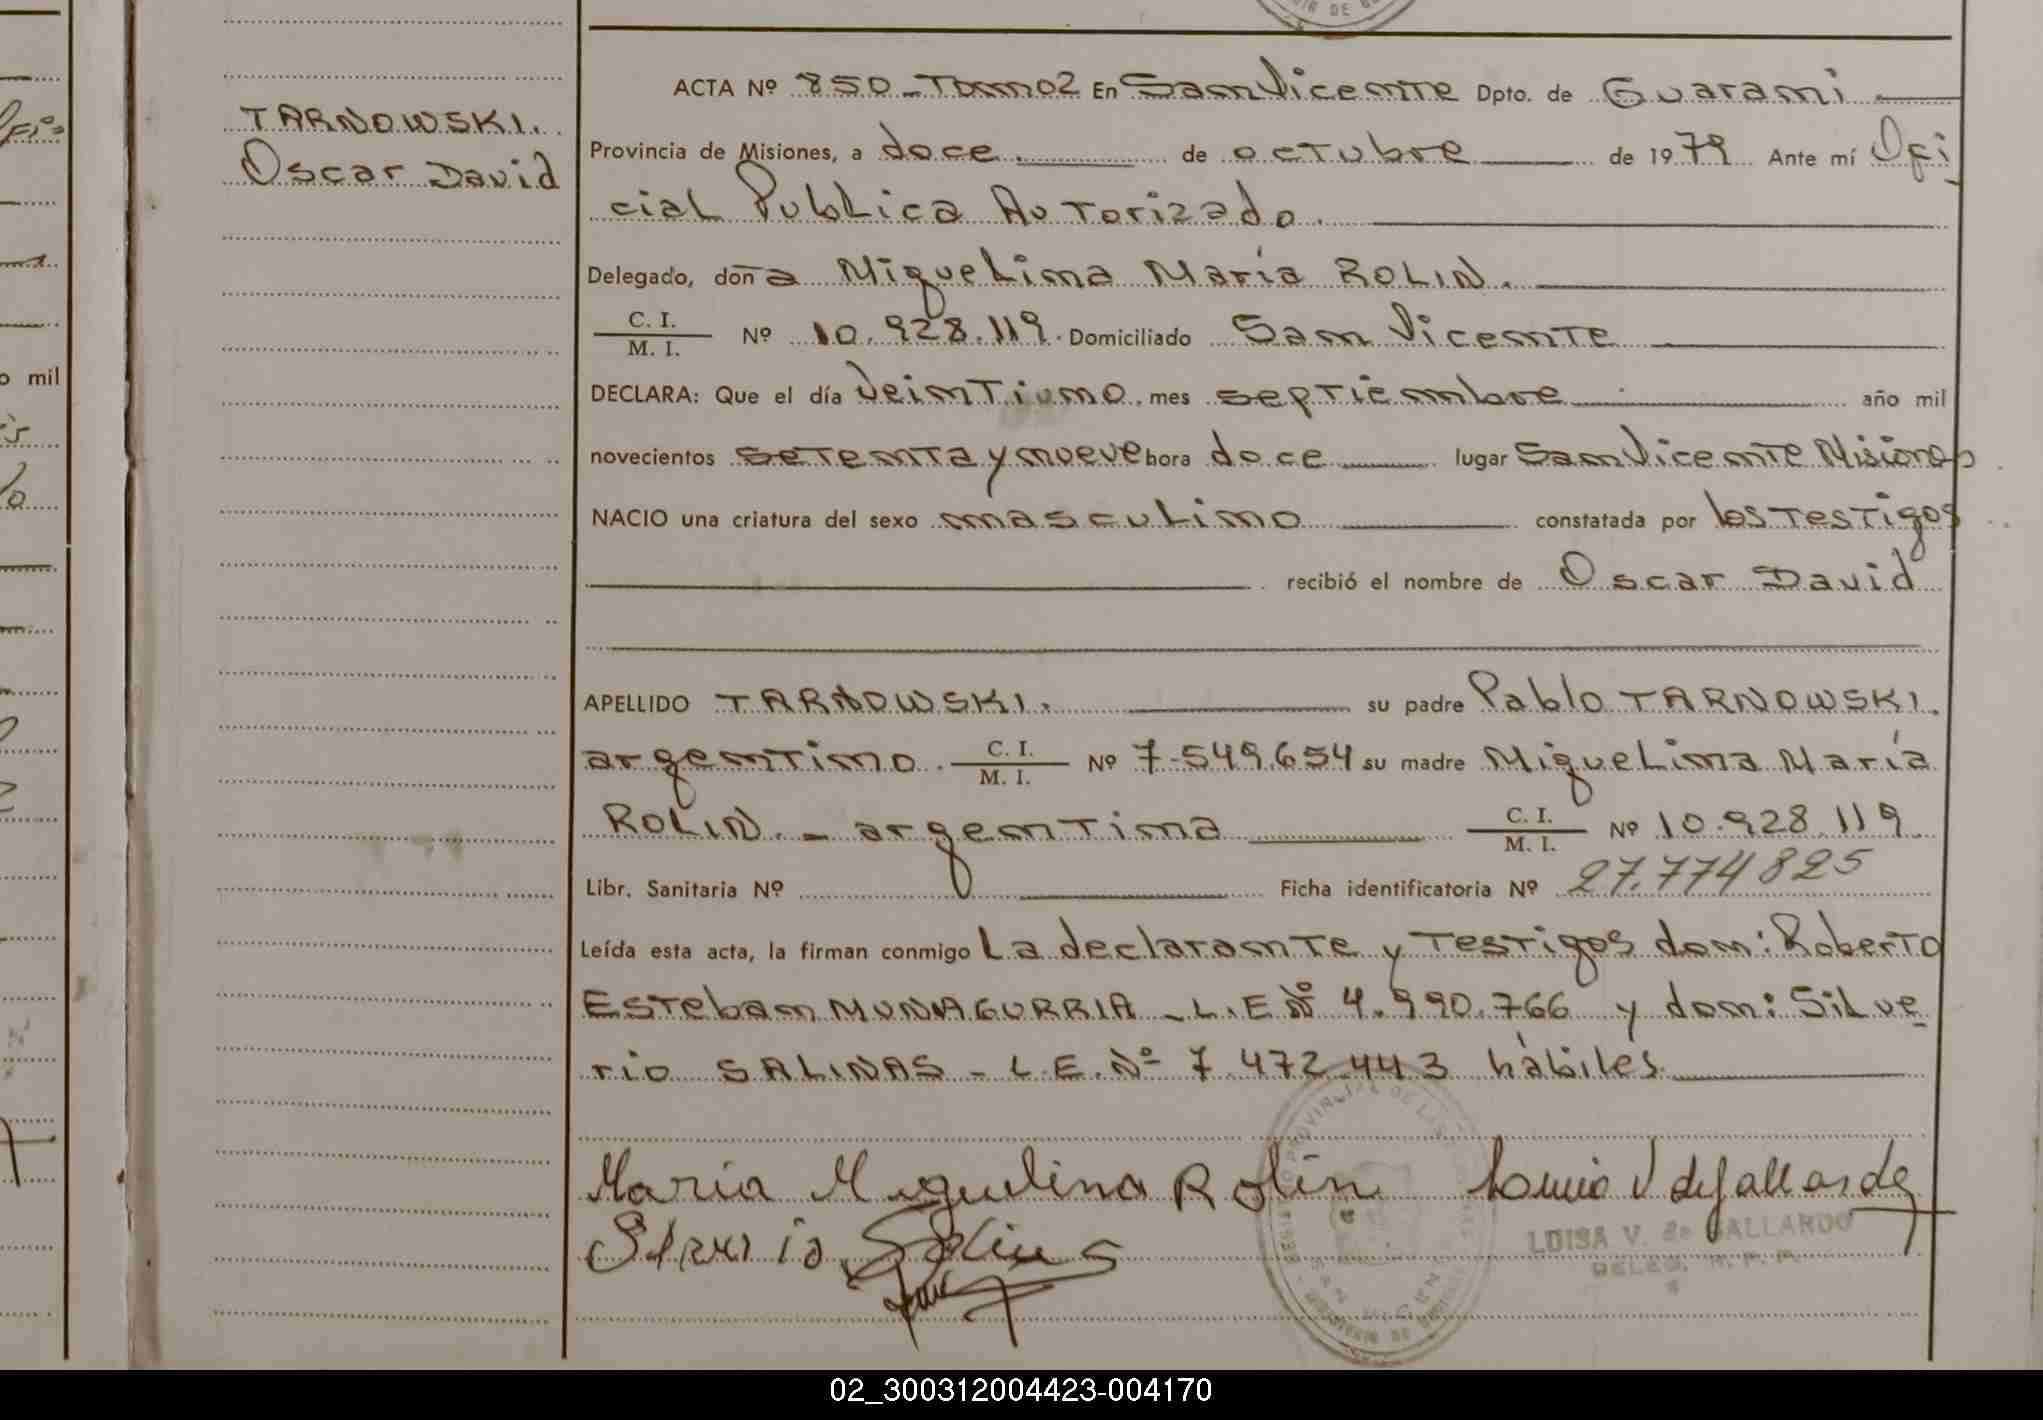 TARNOWSKI.
Oscar David
ACTA Nº 850 - Tomo 2 En San Vicente Dpto. de Guarani
Provincia de Misiones, a doce de octubre de 1979 Ante mí Ofi
cial Publica Autorizado.
Delegado, don a Miguelina María ROLIN.
C. I. / M. I. Nº 10.928.119. Domiciliado San Vicente
DECLARA: Que el día veintiuno mes septiembre año mil
novecientos setenta y nueve hora doce lugar San Vicente Misiones
NACIO una criatura del sexo masculino constatada por los testigos
recibió el nombre de Oscar David
APELLIDO TARNOWSKI. su padre Pablo TARNOWSKI.
argentino. C. I. / M. I. Nº 7.549.654 su madre Miguelina María
ROLIN. - argentina C. I. / M. I. Nº 10.928.119
Libr. Sanitaria Nº Ficha identificatoria Nº 27.774825
Leída esta acta, la firman conmigo La declarante y testigos don: Roberto
Esteban MUNAGURRIA - L.E Nº 4.990.766 y don: Silve
rio SALINAS - L.E. Nº 7.472.443 hábiles.
María Miguelina Rolin
LUISA V. de GALLARDO
02_300312004423-004170